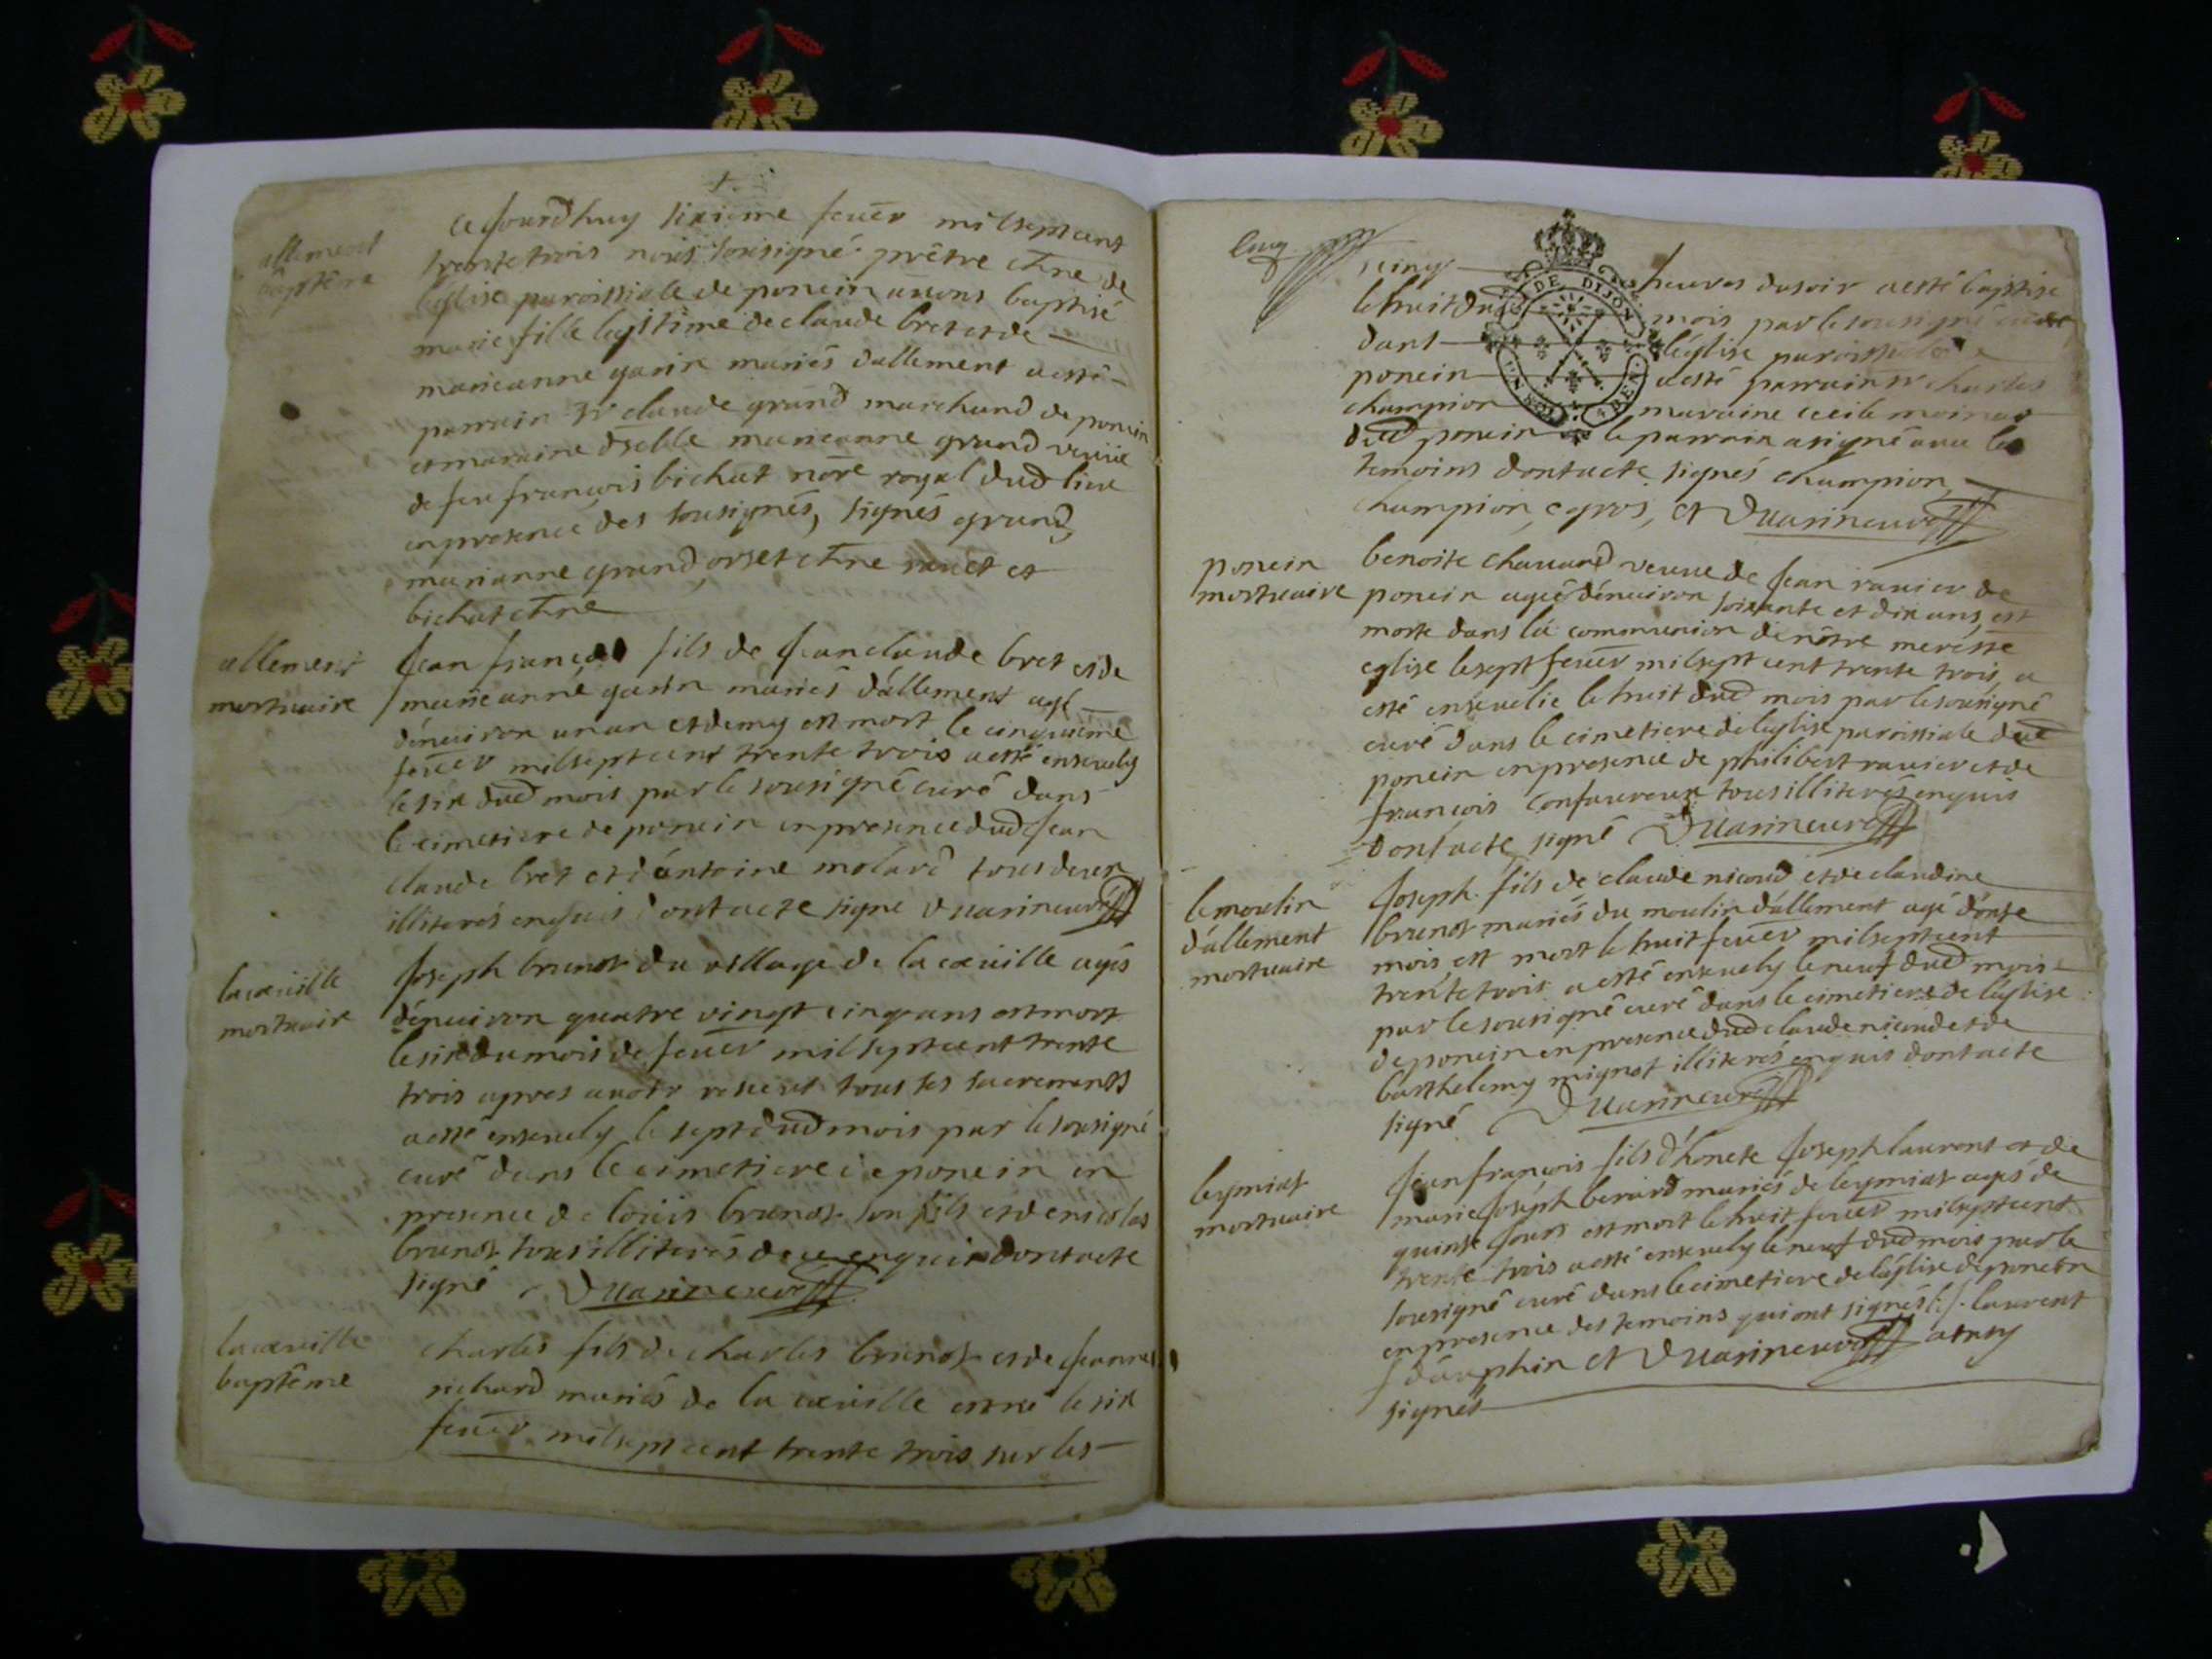 allement
baptême
ce jourdhuy sixieme feuer mil sept cent
trente trois nous sousigné prêtre chne de
léglise paroissiale de poncin auons baptisé
marie fille legitime de claude bret et de
marieanne garin mariés dallement a esté
parrain sr claude grand marchand de poncin
et maraine dselle marieanne grand veuue
de feu francois bichat nore royal dud lieu
en presence des sousignés, signés grand,
marianne grand, orset chne et
bichat chne
allement
mortuaire
Jean françois fils de Jean claude bret et de
marie anne garin mariés dállement agé
dénuiron un an et demy est mort le cinquieme
feuer mil sept cent trente trois a esté enseuely
le six dud mois par le sousigné curé dans
le cimetiere de poncin en presence dud Jean
claude bret et dántoine molard tous deux
illiterés enquis dont acte signé Duarin curé
la cœuille
mortuaire
Joseph brunot du village de la cœuille agés
dénuiron quatre vingt cinq ans est mort
le six du mois de feuer mil sept cent trente
trois apres auoir receut tous ses sacrements
a esté enseuely le sept dud mois par le sousigné
curé dans le cimetiere de poncin en
presence de loüis brunot son fils et de nicolas
brunot tous illiterés de ce enquis dont acte
signé Duarin curé
la cœuille
baptême
charles fils de charles brunot et de Jeanne
richard mariés de la cœuille est né le six
feuer mil sept cent trente trois sur les
cinq heures du soir a esté baptisé
le huit dud mois par le sousigné curé
dans léglise paroissiale de
poncin a esté parrain sr charles
champion maraine cecile moinas
dud poncin le parrain a signé auec les
temoins dont acte signés champion,
champion, cgros, et Duarin curé
GEN. DE DIJON
poncin
mortuaire
benoite chauand veuue de Jean rauier de
poncin agée dénuiron soixante et dix ans, est
morte dans la communion de nôtre mere ste
eglise le sept feuer mil sept cent trente trois, a
esté enseuelie le huit dud mois par le sousigné
curé dans le cimetiere de léglise paroissiale dud
poncin en presence de philibert rauier et de
françois confaureux tous illiterés enquis
dont acte signé Duarin curé
le moulin
dállement
mortuaire
Joseph fils de claude nicoud et de claudine
brunot mariés du moulin dállement agé dónse
mois est mort le huit feuer mil sept cent
trente trois a esté enseuely le neuf dud mois
par le sousigné curé dans le cimetiere de léglise
de poncin en presence dud claude nicoud et de
barthelemy mignot illiterés enquis dont acte
signé Duarin curé
leymiat
mortuaire
Jean françois fils dhonete Joseph laurent et de
marie Joseph berard mariés de leymiat agés de
quinse Jours est mort le huit feuer mil sept cent
trente trois a esté enseuely le neuf dud mois par le
sousigné curé dans le cimetiere de léglise de poncin
en presence des temoins qui ont signés J. laurent
J dauphin et Duarin curé
signés